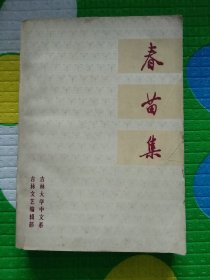 春苗集
吉林大学中文系
吉林文艺编辑部